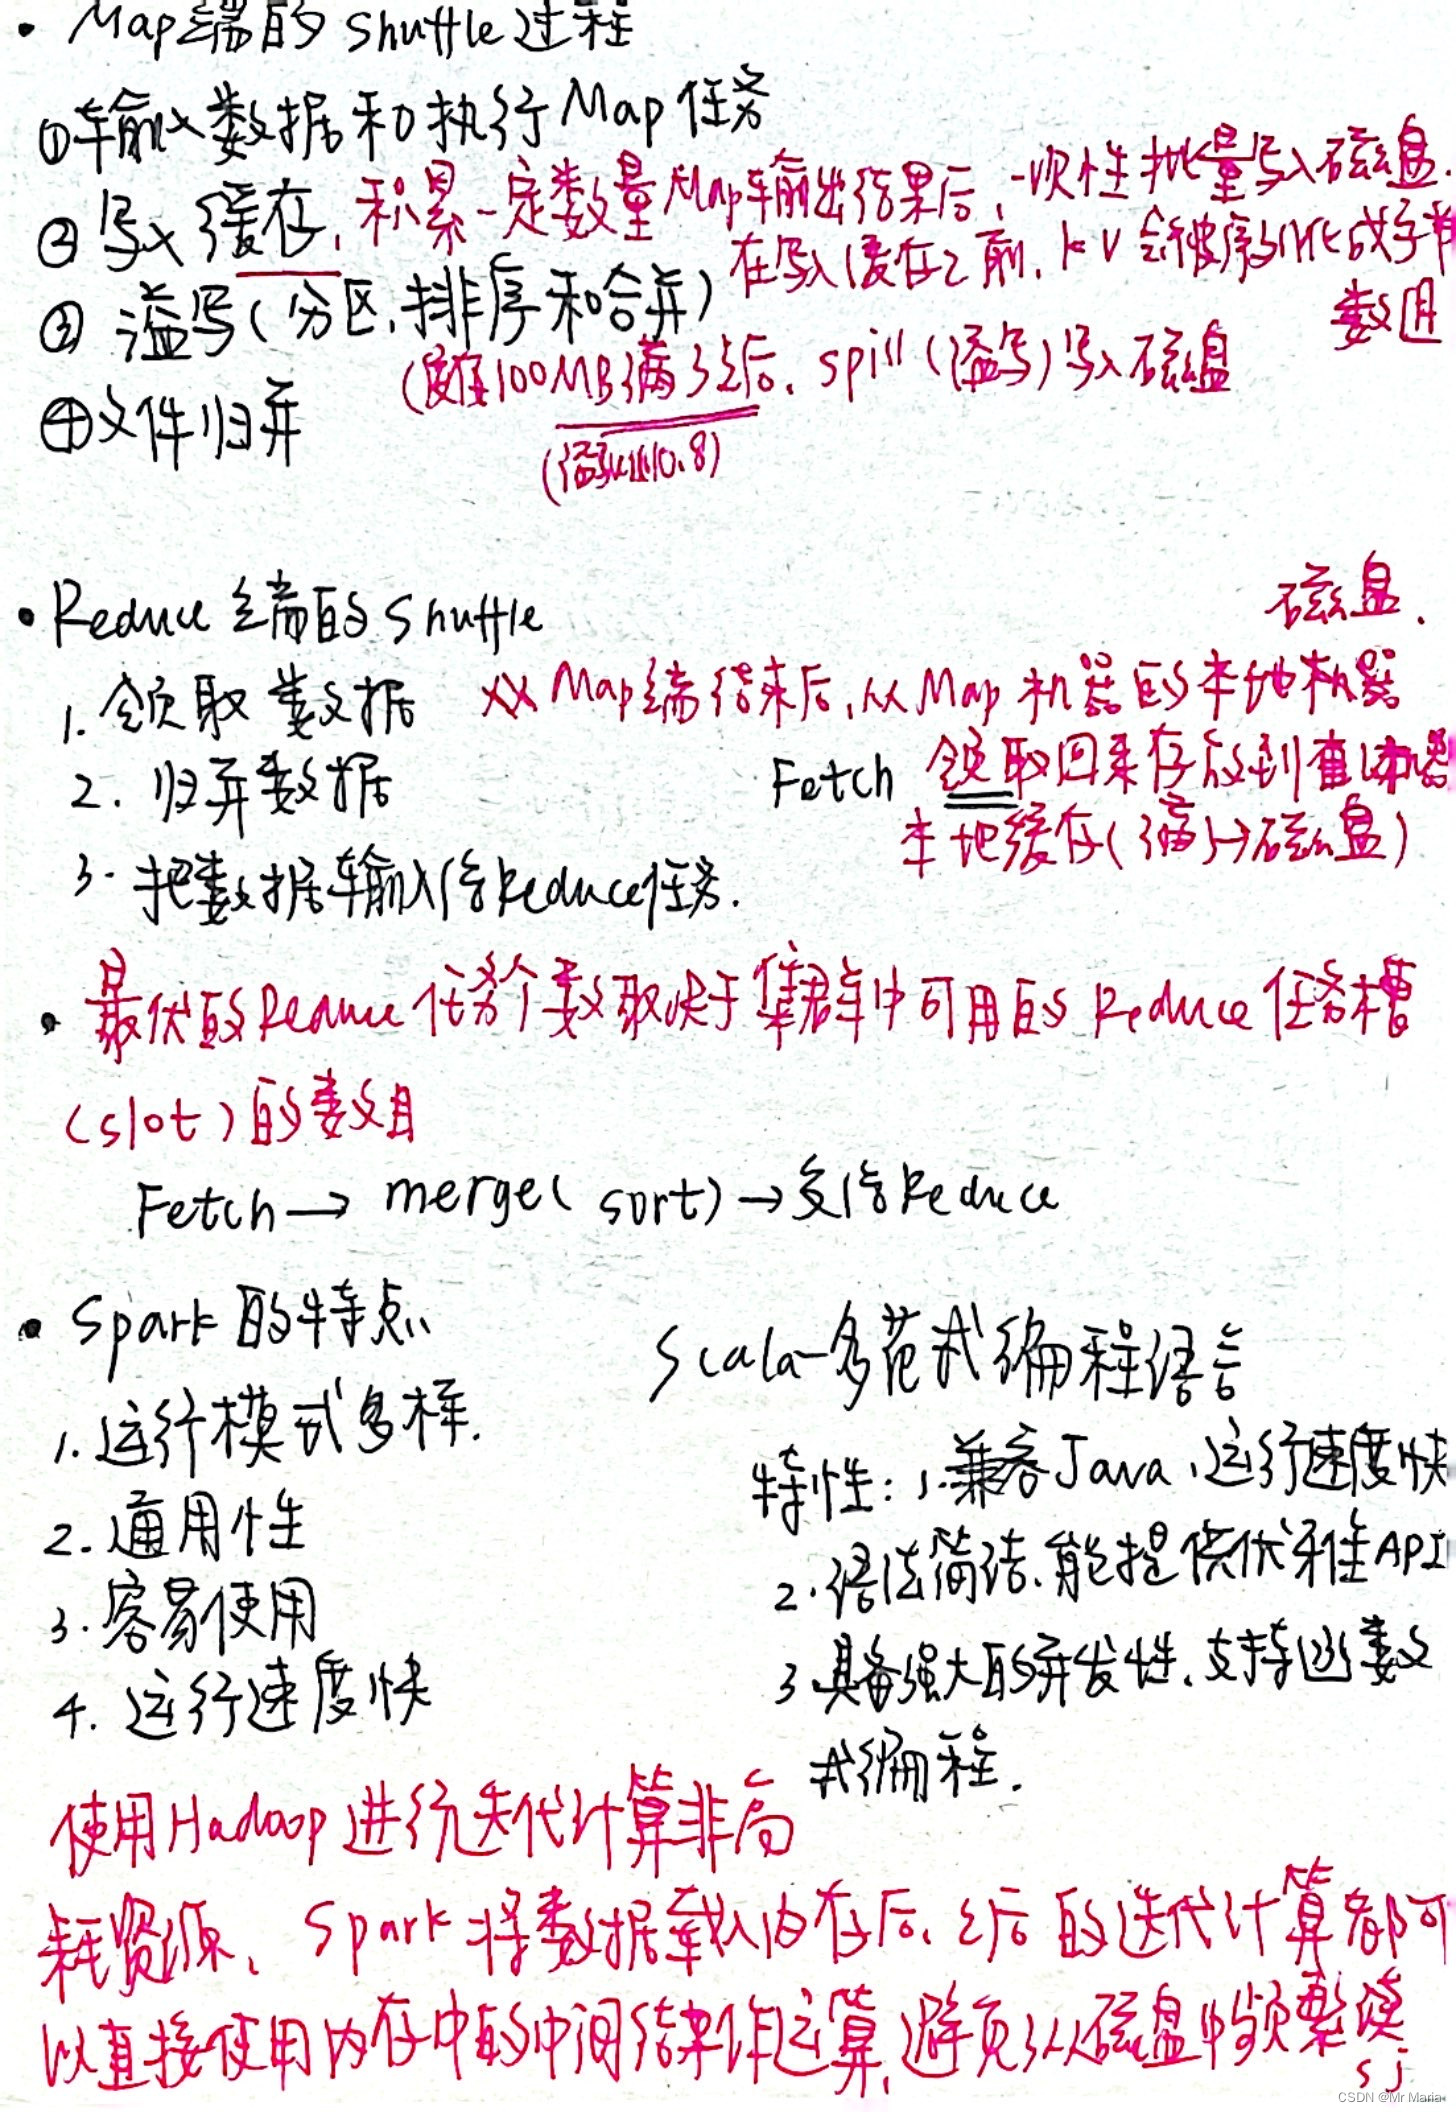 • Map端的shuffle过程
①输入数据和执行Map任务
②写入缓存,积累一定数量Map输出结果后,一次性批量写入磁盘.
在写入缓存之前,KV会被序列化成字节
数组
③溢写(分区,排序和合并)
(缓存100MB满了之后,spill(溢写)写入磁盘
(溢写比0.8)
④文件归并
• Reduce端的shuffle
磁盘.
1.领取数据
Map端结束后,从Map机器的本地机器
2.归并数据
Fetch 领取回来存放到自己机器
本地缓存(满了→磁盘)
3.把数据输入给Reduce任务.
• 最优的Reduce任务个数取决于集群中可用的Reduce任务槽
(slot)的数目
Fetch→merge(sort)→交给Reduce
• Spark的特点
1.运行模式多样.
2.通用性
3.容易使用
4.运行速度快
Scala—多范式编程语言
特性:1.兼容Java,运行速度快
2.语法简洁,能提供优雅API
3.具备强大的并发性,支持函数
式编程.
使用Hadoop进行迭代计算非常
耗资源,Spark将数据载入内存后,之后的迭代计算都可
以直接使用内存中的中间结果作运算,避免了从磁盘中频繁读
sj
CSDN @Mr Maria